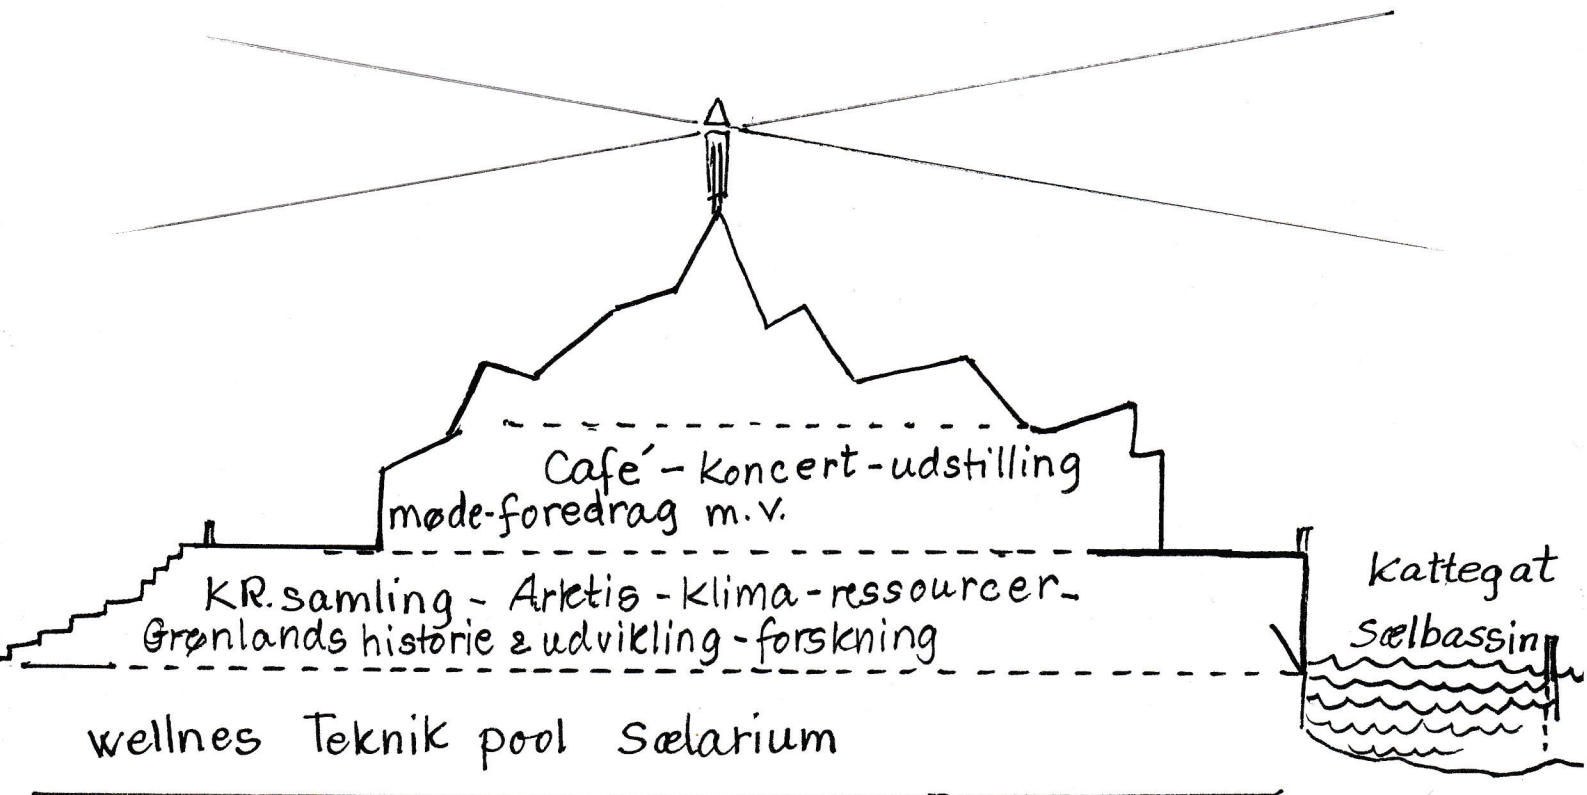 Café - koncert - udstilling
møde-foredrag m.v.
KR. samling - Arktis - klima - ressourcer -
Grønlands historie & udvikling - forskning
Kattegat
Sælbassin
wellnes Teknik pool Sælarium